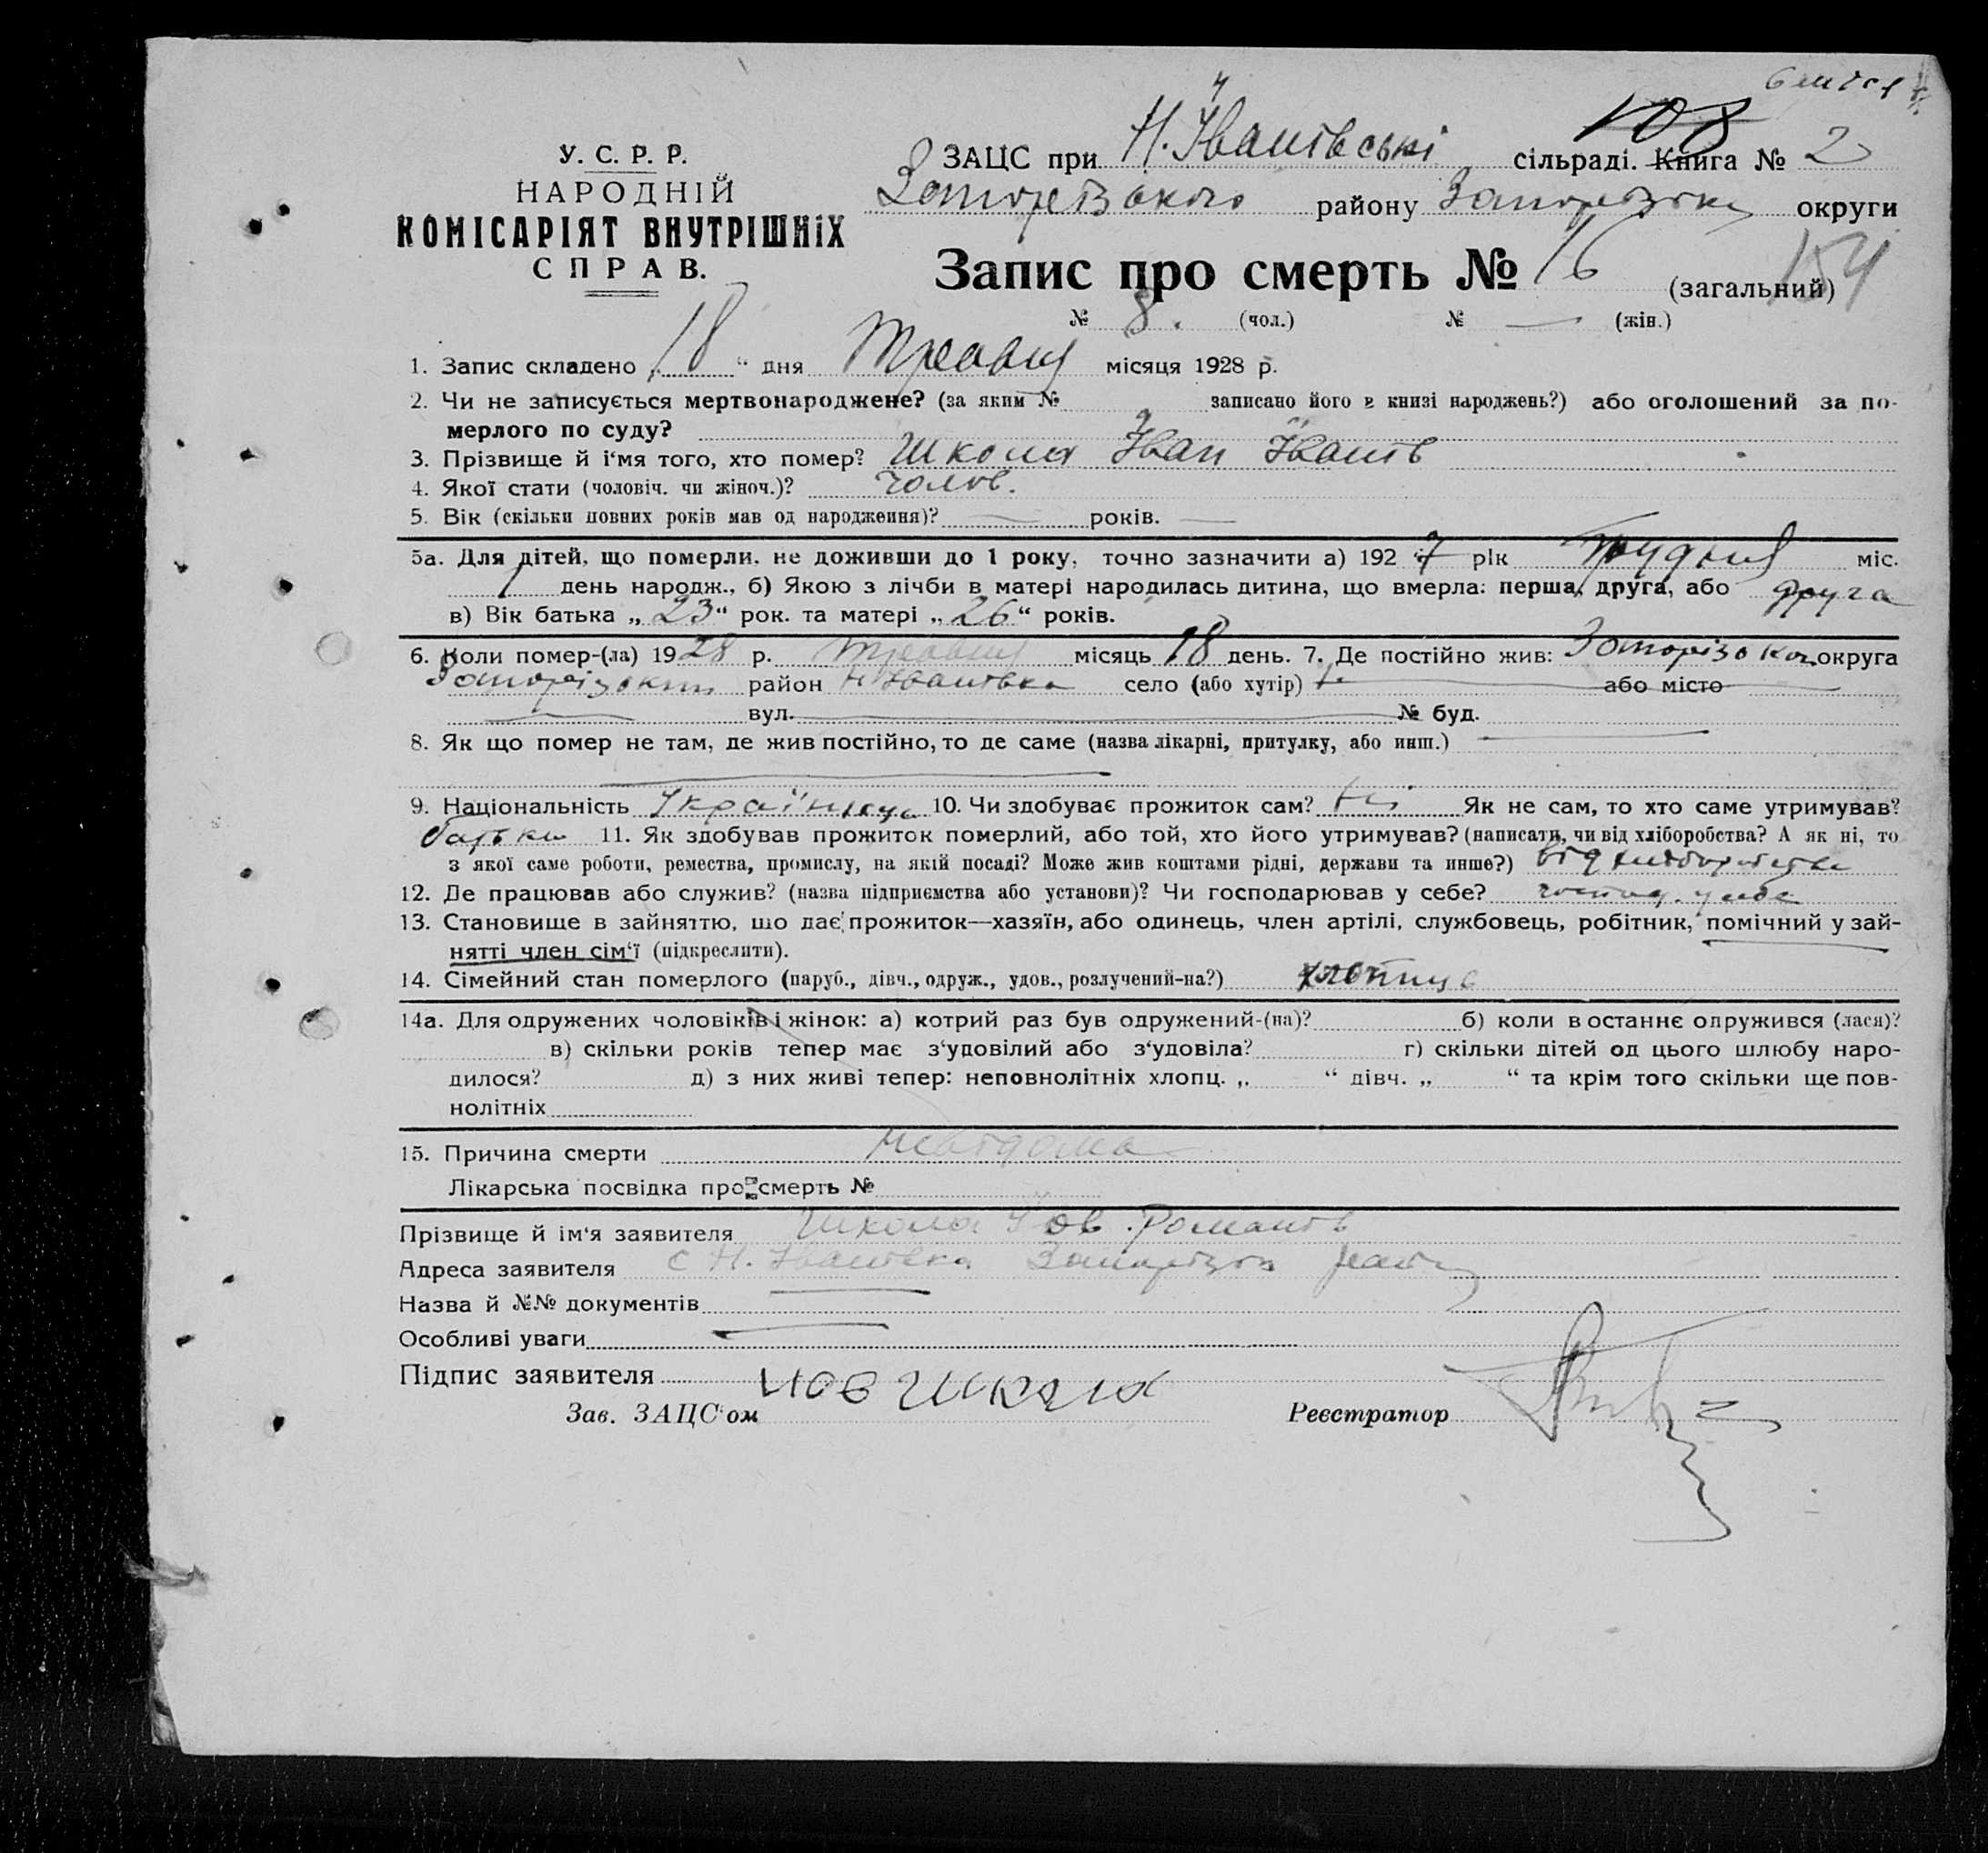 6 міся
У. С. Р. Р.
НАРОДНІЙ
КОМІСАРІЯТ ВНУТРІШНІХ
СПРАВ.
108
ЗАЦС при Н. Іванівські сільраді. Книга № 2
Запорізького району Запорізької округи
Запис про смерть № 16 (загальний) 154
№ 8. (чол.) № — (жін.)
1. Запис складено „18“ дня Травня місяця 1928 р.
2. Чи не записується мертвонароджене? (за яким № записано його в книзі народжень?) або оголошений за по-
мерлого по суду?
3. Прізвище й і‘мя того, хто помер? Школа Іван Іванів
4. Якої стати (чоловіч. чи жіноч.)? чолов.
5. Вік (скільки повних років мав од народження)? — років. —
5а. Для дітей, що померли, не доживши до 1 року, точно зазначити а) 1927 рік Грудня міс.
1 день народж., б) Якою з лічби в матері народилась дитина, що вмерла: перша, друга, або друга
в) Вік батька „23“ рок. та матері „26“ років.
6. Коли помер-(ла) 1928 р. травня місяць 18 день. 7. Де постійно жив: Запорізька округа
Запорізький район Н Іванівка село (або хутір) або місто
вул. № буд.
8. Як що помер не там, де жив постійно, то де саме (назва лікарні, притулку, або инш.) —
9. Національність Українець 10. Чи здобуває прожиток сам? ні Як не сам, то хто саме утримував?
батьки 11. Як здобував прожиток померлий, або той, хто його утримував? (написати, чи від хліборобства? А як ні, то
з якої саме роботи, ремества, промислу, на якій посаді? Може жив коштами рідні, держави та инше?) від хліборобства
12. Де працював або служив? (назва підприємства або установи)? Чи господарював у себе? господ. у себе
13. Становище в зайняттю, що дає прожиток—хазяїн, або одинець, член артілі, службовець, робітник, помічний у зай-
нятті член сім‘ї (підкреслити).
14. Сімейний стан померлого (паруб., дівч., одруж., удов., розлучений-на?) хлопець
14а. Для одружених чоловіків і жінок: а) котрий раз був одружений-(на)? б) коли в останнє одружився (лася)?
в) скільки років тепер має з‘удовілий або з‘удовіла? г) скільки дітей од цього шлюбу наро-
дилося? д) з них живі тепер: неповнолітніх хлопц. „ “ дівч. „ “ та крім того скільки ще пов-
нолітніх
15. Причина смерти невідома
Лікарська посвідка про смерть №
Прізвище й ім‘я заявителя Школа Йов Романів
Адреса заявителя с Н. Іванівка Запорізьк району
Назва й №№ документів —
Особливі уваги —
Підпис заявителя Йов Школа
Зав. ЗАЦС‘ом Реєстратор